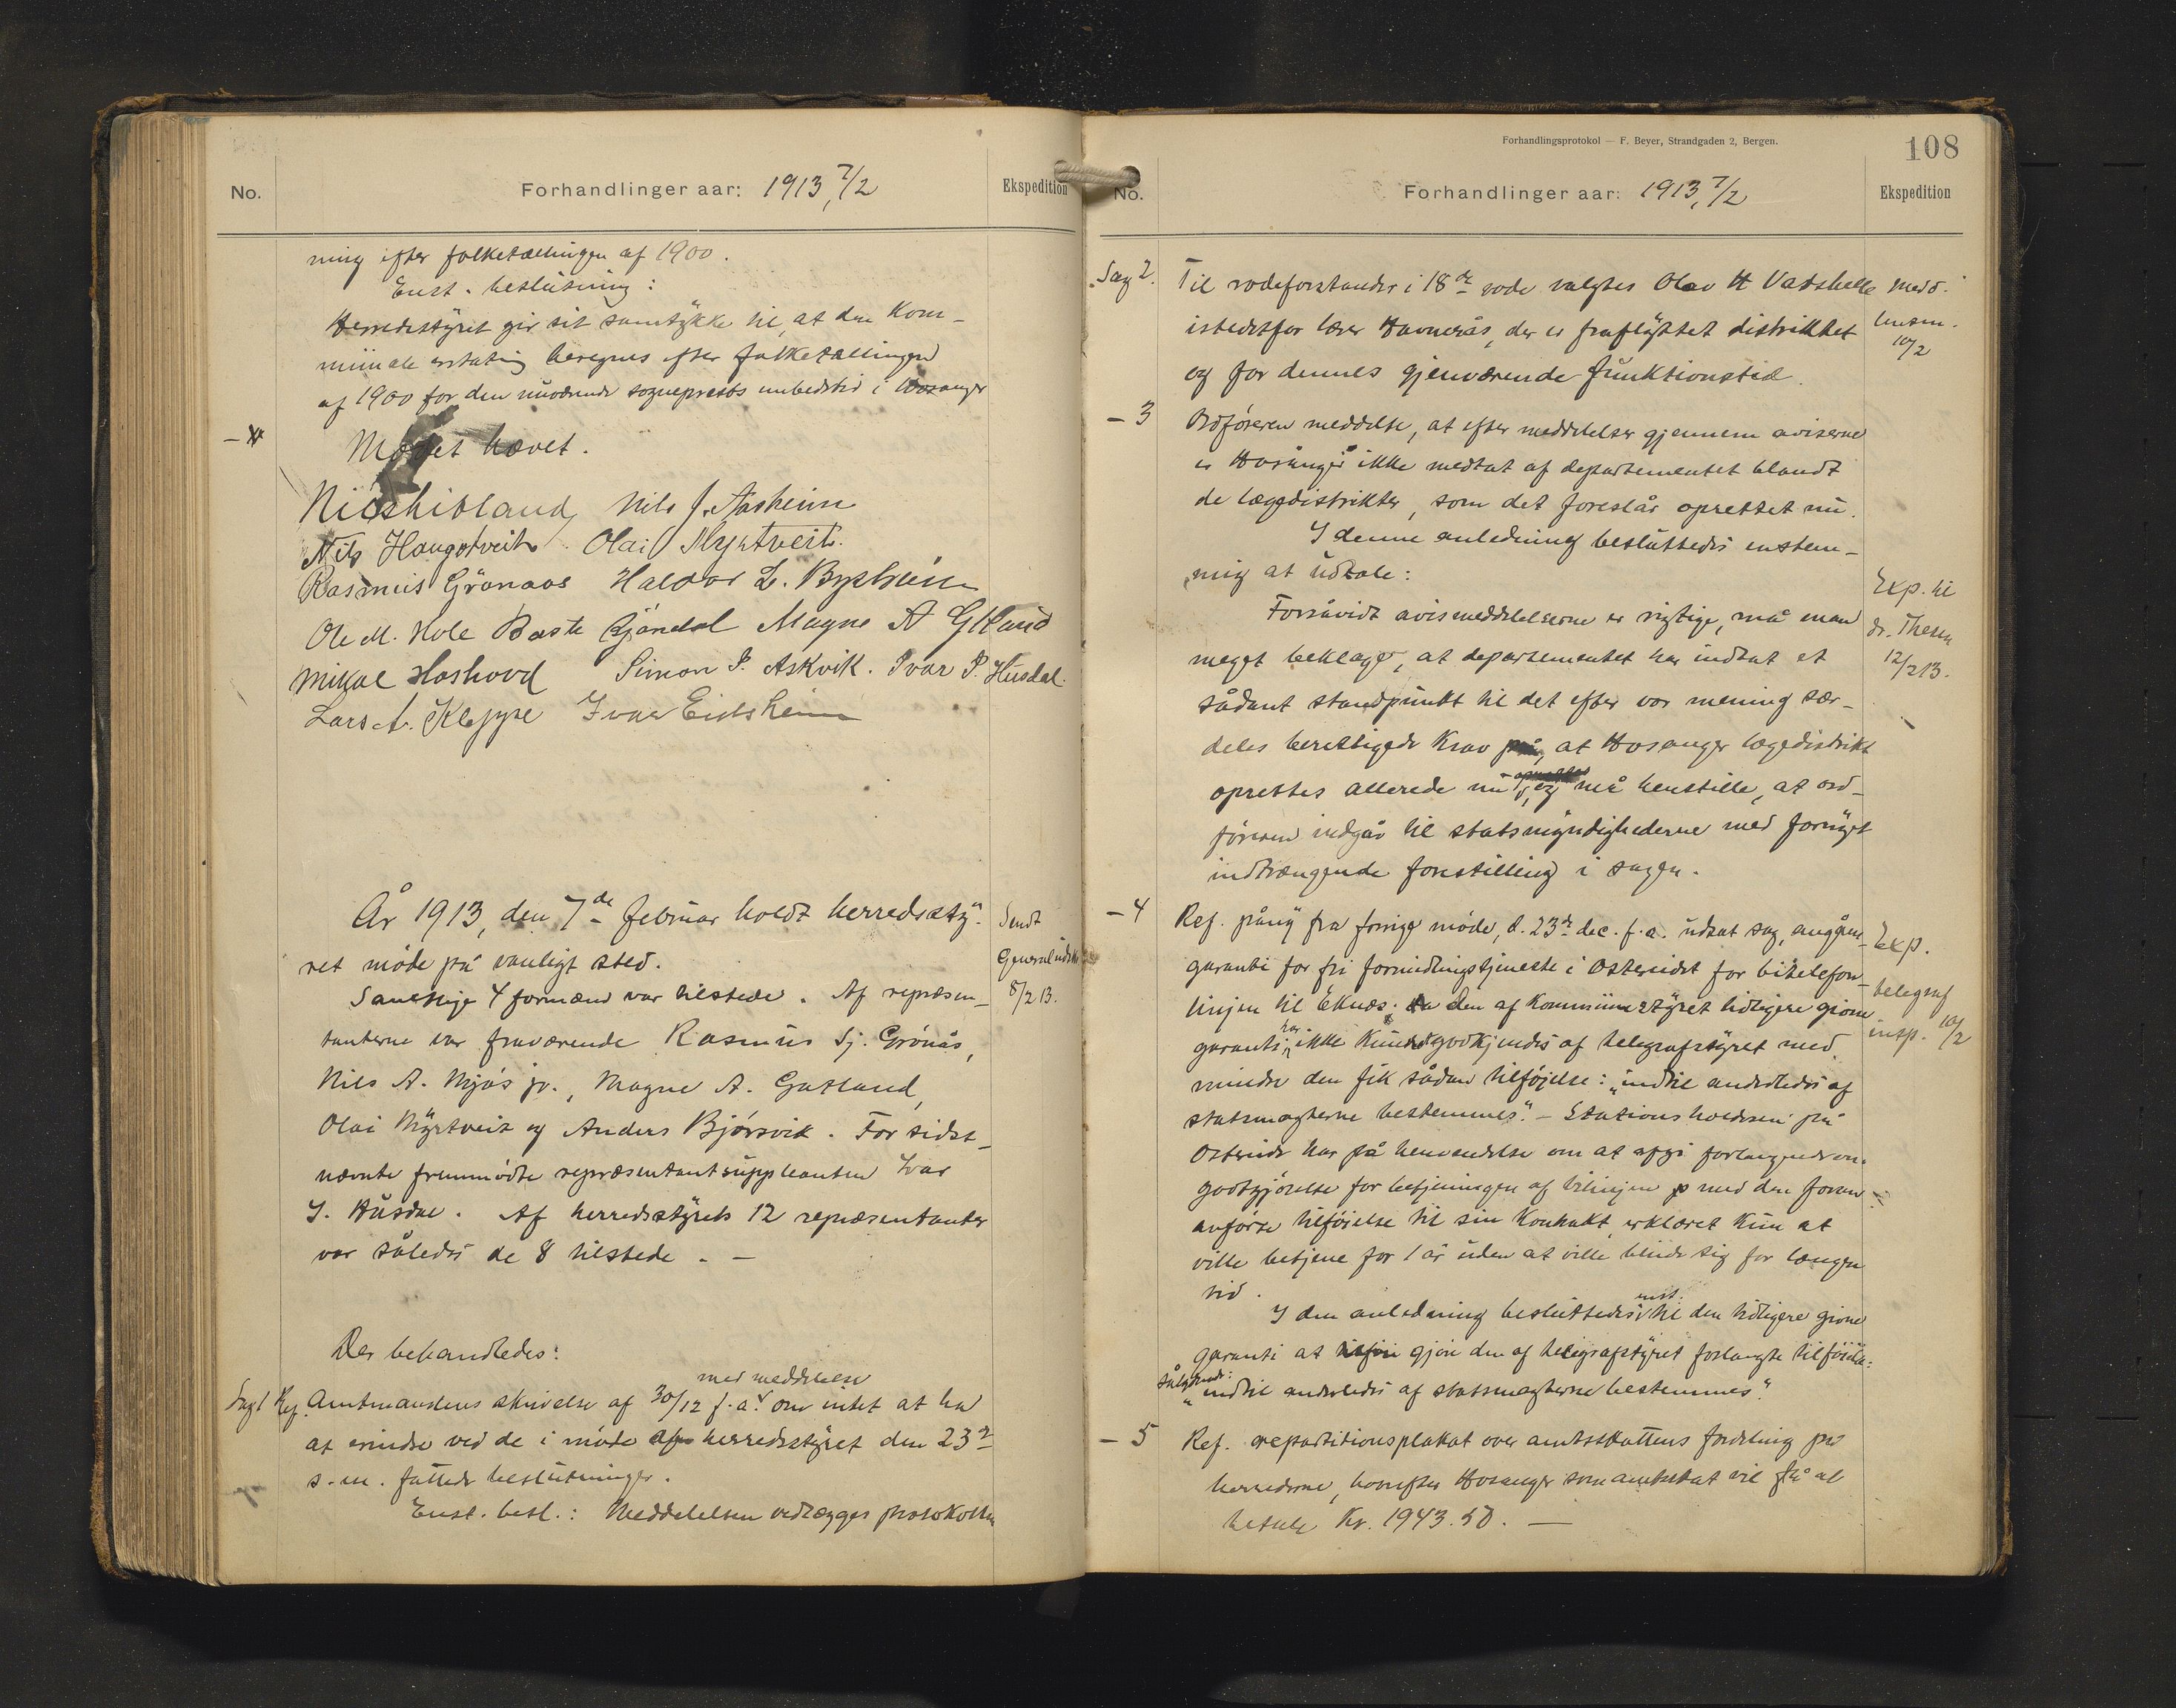 No.
Forhandlinger aar: 1913, 7/2
Ekspedition
ning efter folketællingen af 1900.
Enst. beslutning:
Herredsstyret gir sit samtykke til, at den kom-
munale erstatning beregnes efter folketællingen
af 1900 for den nuværende sogneprests embedstid i Hosanger
Mødet hævet.
Nils J. Aasheim
Nils Hougstveit Olai Myrtveit.
Rasmus Grønaas Haldor L. Bysheim
Ole M. Hole Baste Gjøndal Magne A Gatland
Mikal Hoshovd Simon P. Askvik. Ivar P. Husdal.
Lars A. Kleppe Ivar Eidsheim
År 1913, den 7de februar holdt herredssty-
ret møde på vanligt sted.
Sendt
Generaludsk.
8/2 13.
Samtlige 4 formænd var tilstede. Af repræsen-
tanterne var fraværende Rasmus Sj. Grønås,
Nils A. Mjøs jr., Magne A. Gatland,
Olai Myrtveit og Anders Bjørsvik. For sidst-
nævnte fremmødte repræsentantsuppleanten Ivar
J. Husdal. Af herredsstyrets 12 repræsentanter
var således de 8 tilstede. —
Der behandledes:
med meddelelse
Sag 1 Ref. Amtmandens skrivelse af 30/12 f.a. om intet at ha
at erindre ved de i møde af herredsstyret den 23de
s.m. fattede beslutninger.
Enst. besl.: Meddelelsen vedlægges protokollen
Forhandlingsprotokol — F. Beyer, Strandgaden 2, Bergen.
108
No.
Forhandlinger aar: 1913, 7/2
Ekspedition
Sag 2. Til rodeforstander i 18de rode valgtes Olav H Vatshelle
istedetfor lærer Havnerås, der er fraflyttet distriktet
og for dennes gjenværende funktionstid.
Medd.
lensm.
10/2
- 3 Ordføreren meddelte, at efter meddelelser gjennem aviserne
er Hosanger ikke medtat af departementet blandt
de lægedistrikter, som det foreslår oprettet nu.
I denne anledning besluttedes enstem-
mig at udtale:
Forsåvidt avismeddelelserne er rigtige, må man
meget beklage, at departementet har indtat et
sådant standpunkt til det efter vor mening sær-
deles berettigede krav på, at Hosanger lægedistrikt
oprettes allerede nu, og må henstille, at ord-
føreren indgår til statsmyndighederne med fornyet
indtrængende forestilling i sagen.
Exp. til
dr. Thesen
12/2 13.
- 4 Ref. påny fra forrige møde, d. 23de dec. f.a. udsat sag, angående
garanti for fri formidlingstjeneste i Ostereidet for bitelefon-
linjen til Eknes; da den af kommunestyret tidligere givne
garanti har ikke kunnet godkjendes af telegrafstyret med
mindre den fik sådan tilføjelse: "indtil anderledes af
statsmagterne bestemmes". — Stationsholdersen på
Ostereide har på henvendelse om at afgi forlangende om
godtgjørelse for betjeningen af bilinjen med den foran
anførte tilføielse til sin kontrakt, erklæret kun at
ville betjene for 1 år uden at ville binde sig for længre
tid.
Exp.
telegraf
insp. 10/2
enst.
I den anledning besluttedes til den tidligere givne
garanti at gjøre den af telegrafstyret forlangte tilføielse:
sålydende:
"indtil anderledes af statsmagterne bestemmes".
- 5 Ref. repartitionsplakat over amtsskattens fordeling på
herrederne, hvorefter Hosanger som amtsskat vil få at
betale Kr. 1943.50. —